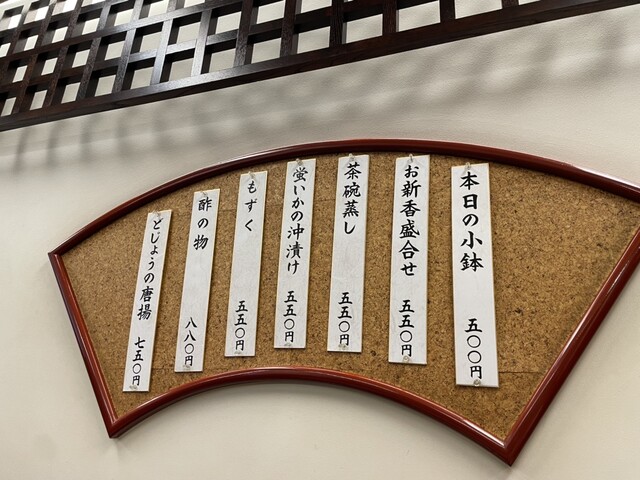 本日の小鉢 五〇〇円
お新香盛合せ 五五〇円
茶碗蒸し 五五〇円
蛍いかの沖漬け 五五〇円
もずく 五五〇円
酢の物 八八〇円
どじょうの唐揚 七五〇円